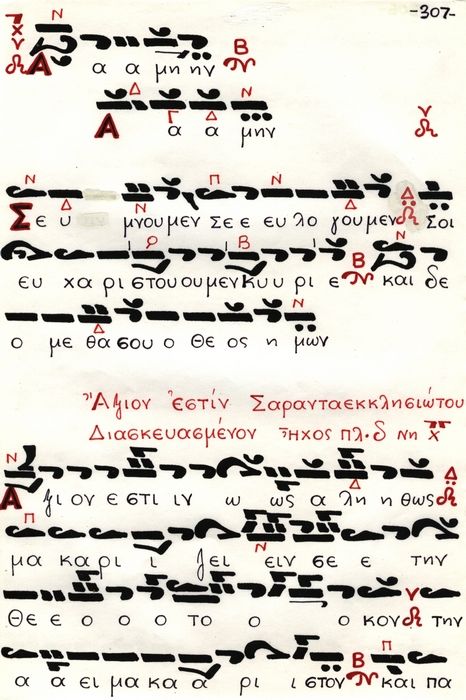 -307-
Ν
Β
Α α α μη ην
Δ Γ Δ Ν
Α α α μην
Ν Δ Ν Π Ν Δ Δ
Σε υ μνου μεν Σε ε ευ λο γου μεν Σοι
Ρ Β Ν
ευ χα ρι στου ου μεν Κυ υ ρι ε Β και δε
Δ Ν
ο με θα σου ο Θε ος η μων
Ἄξιον ἐστίν Σαρανταεκκλησιώτου
Διασκευασμένον Ἦχος πλ. δ Νη
Ν Δ Δ
Α ξι ον ε στι ιν ω ως α λη η θως
Π Ν
μα κα ρι ι ζει ειν σε ε την
Θε ε ο ο ο το ο ο κον την
Β Π
α α ει μα κα α ρι ι στον και πα